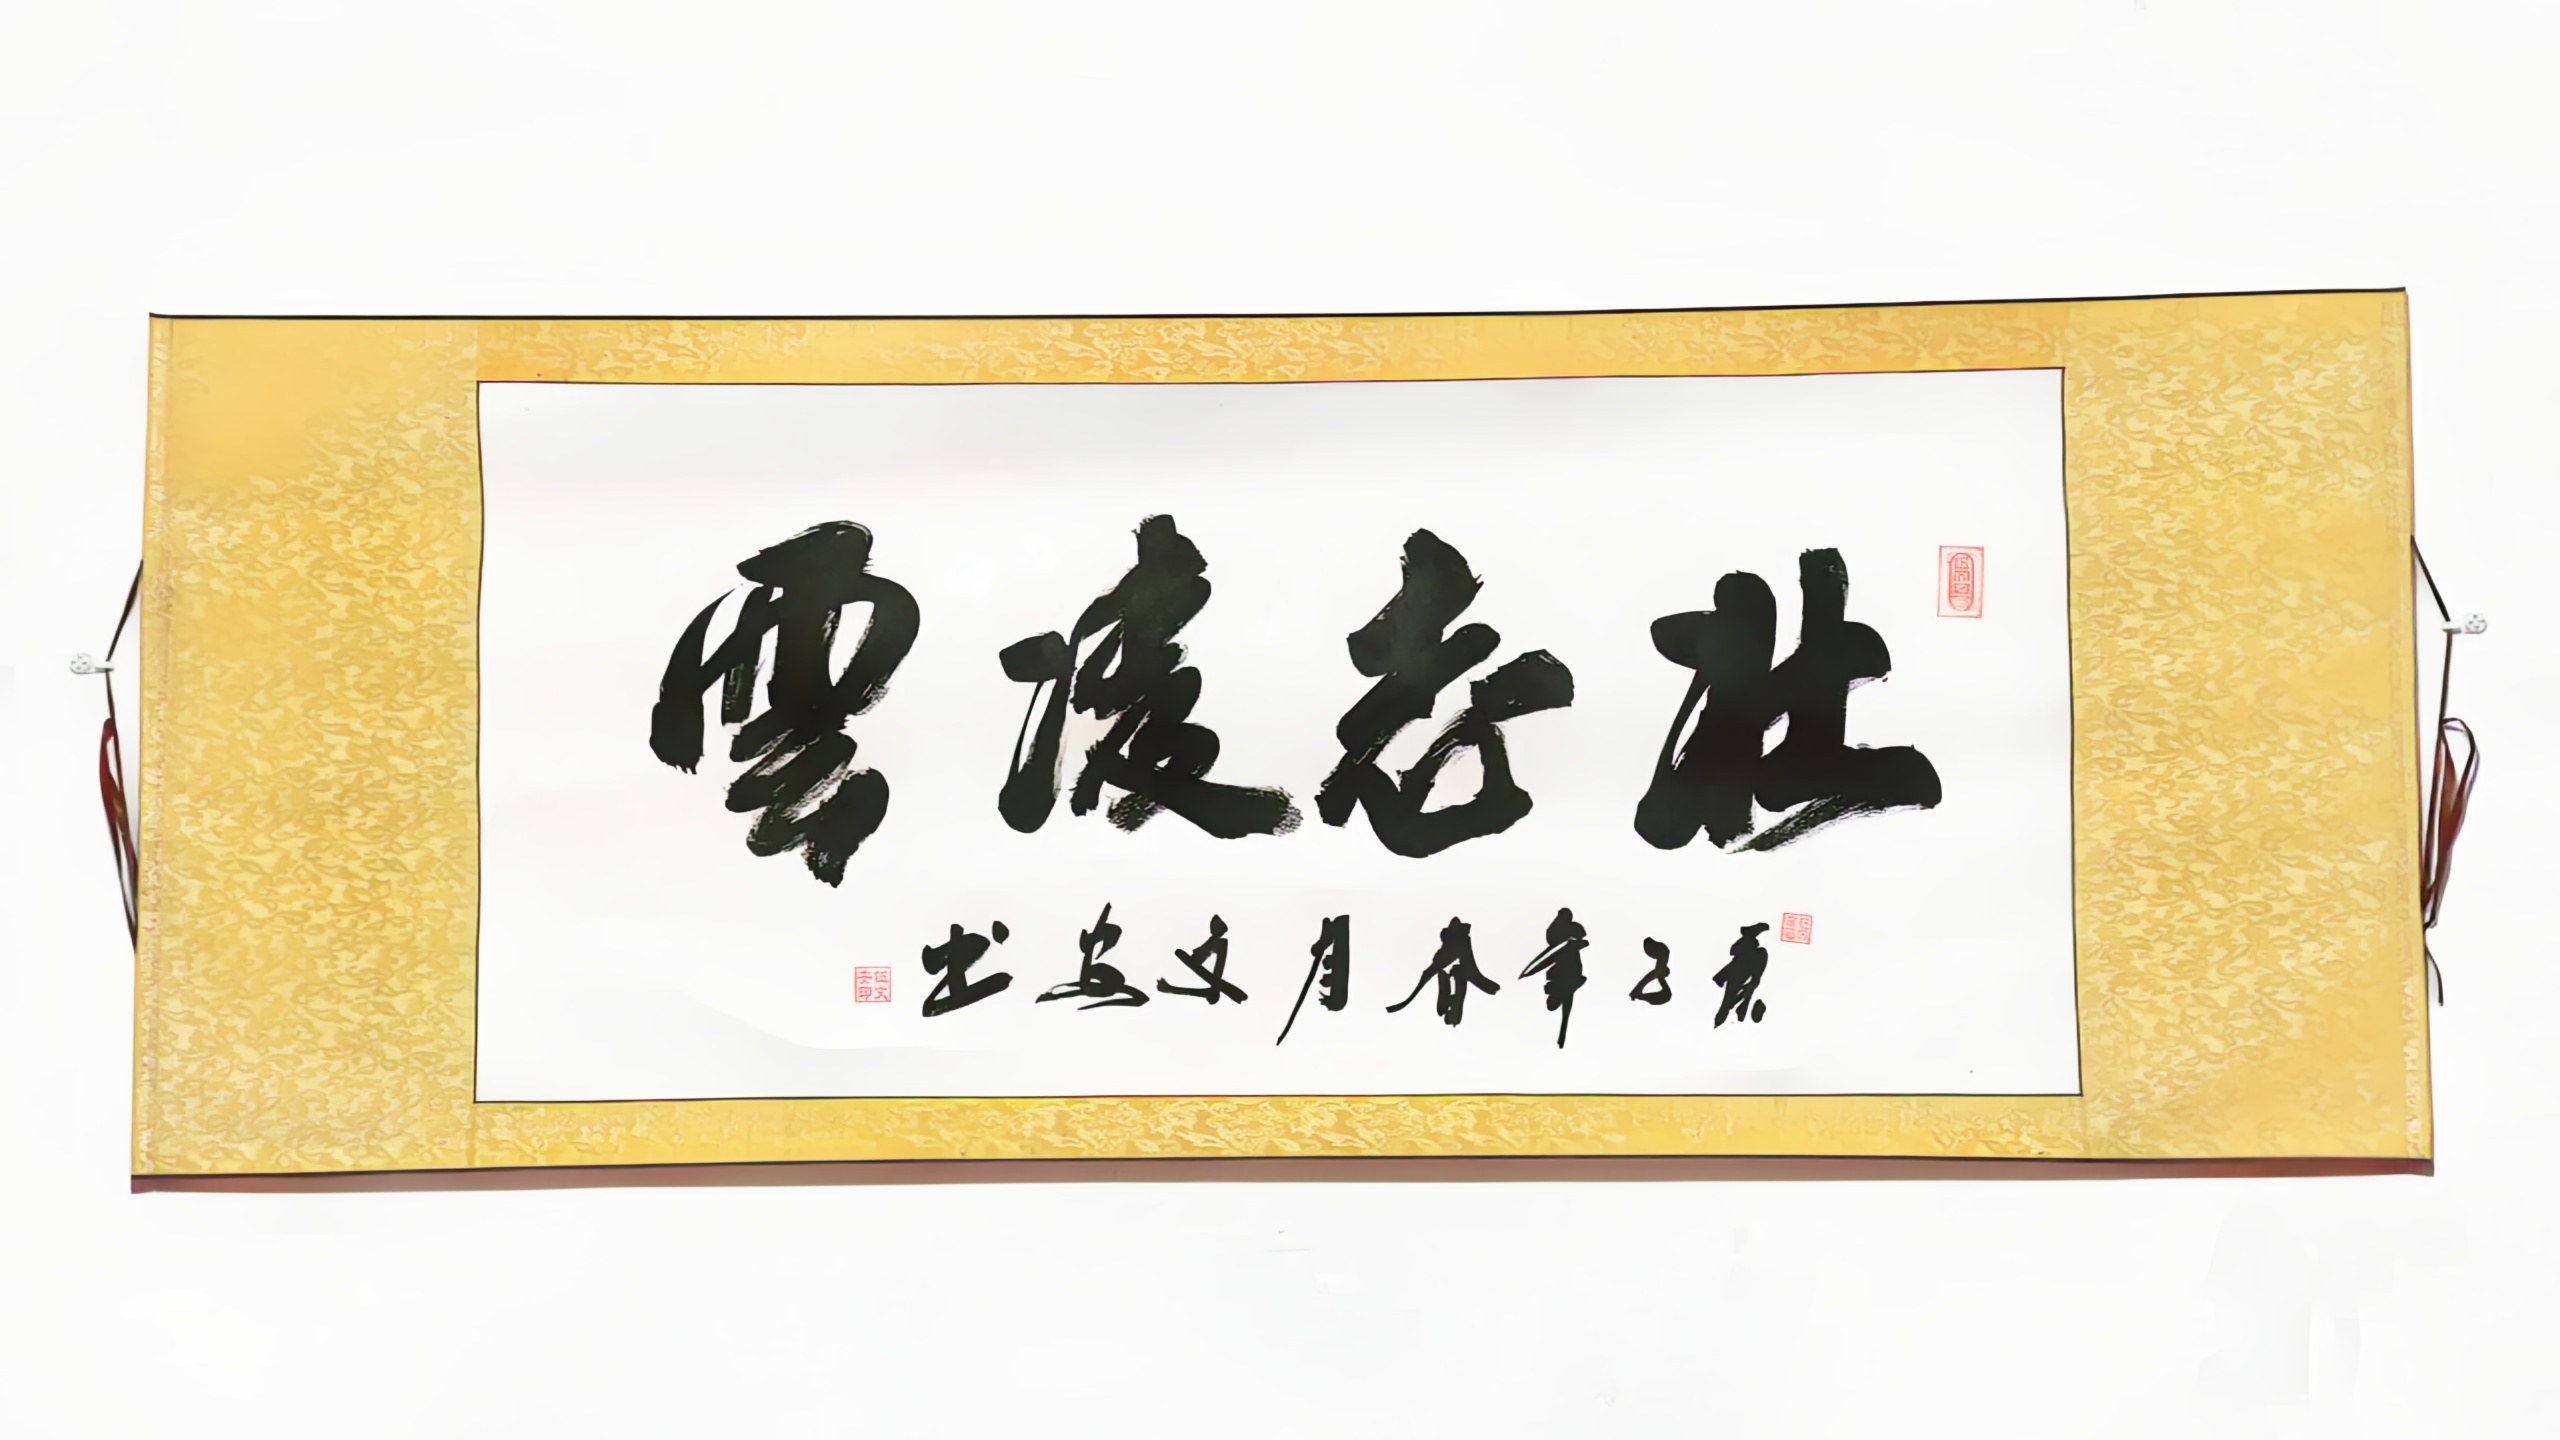 壮志凌雲
庚子年春月文安书